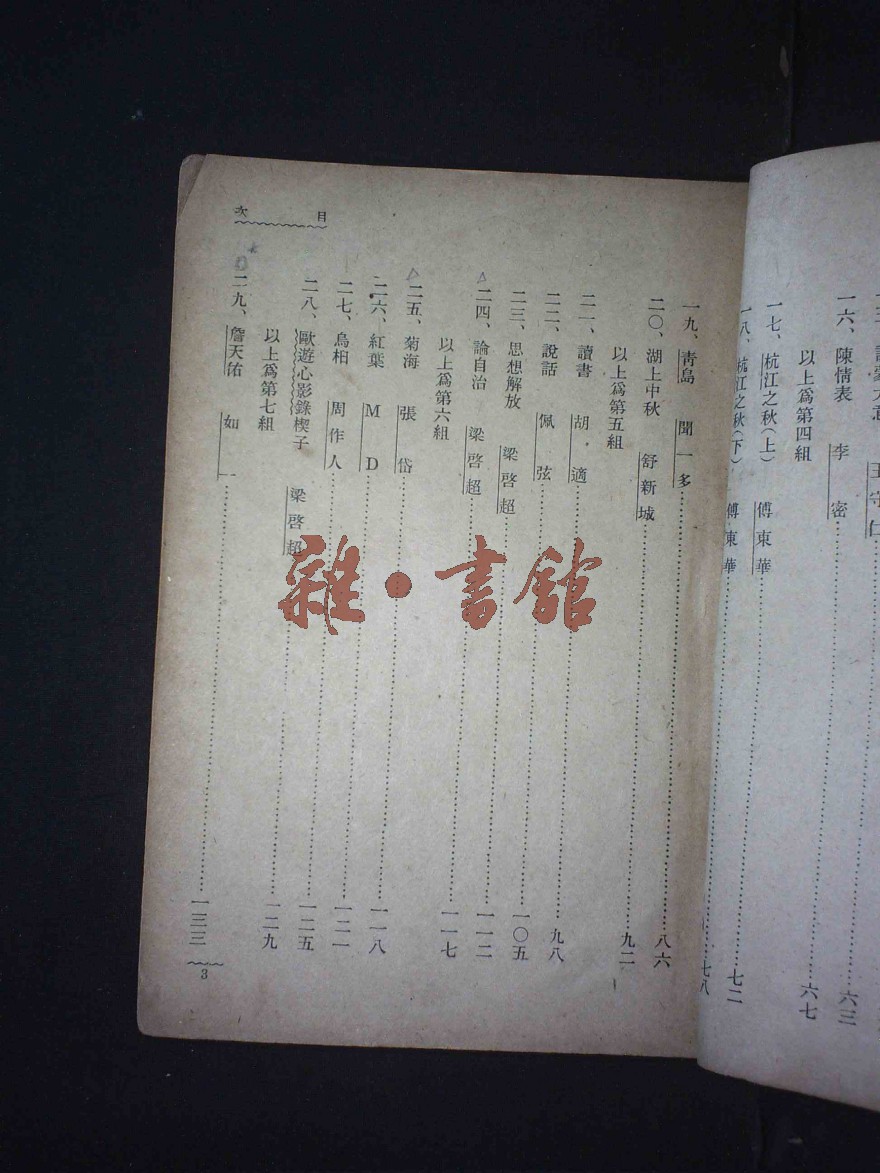 大意 王守仁……六三
一六、陳情表 李密……六七
以上爲第四組
一七、杭江之秋(上) 傅東華……七二
一八、杭江之秋(下) 傅東華……七八
目次
一九、靑島 聞一多……八六
二〇、湖上中秋 舒新城……九二
以上爲第五組
二一、讀書 胡適……九八
二二、說話 佩弦……一〇五
二三、思想解放 梁啓超……一一二
二四、論自治 梁啓超……一一七
以上爲第六組
二五、菊海 張岱……一一八
二六、紅葉 M D……一二一
二七、烏桕 周作人……一二五
二八、歐遊心影錄楔子 梁啓超……一二九
以上爲第七組
二九、詹天佑 如一……一三三
3
雜·書館